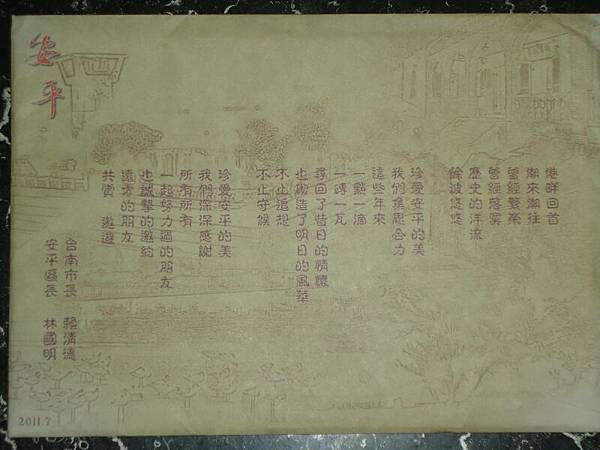 安平
港畔回首
潮來潮往
曾經繁榮
曾經落寞
歷史的洋流
餘波悠悠
珍愛安平的美
我們集思合力
這些年來
一點一滴
一磚一瓦
尋回了昔日的情懷
也締造了明日的風華
不止追想
不止守候
珍愛安平的美
我們深深感謝
所有所有
一起努力過的朋友
也誠摯的邀約
遠方的朋友
共賞 遨遊
台南市長 賴清德
安平區長 林國明
2011.7